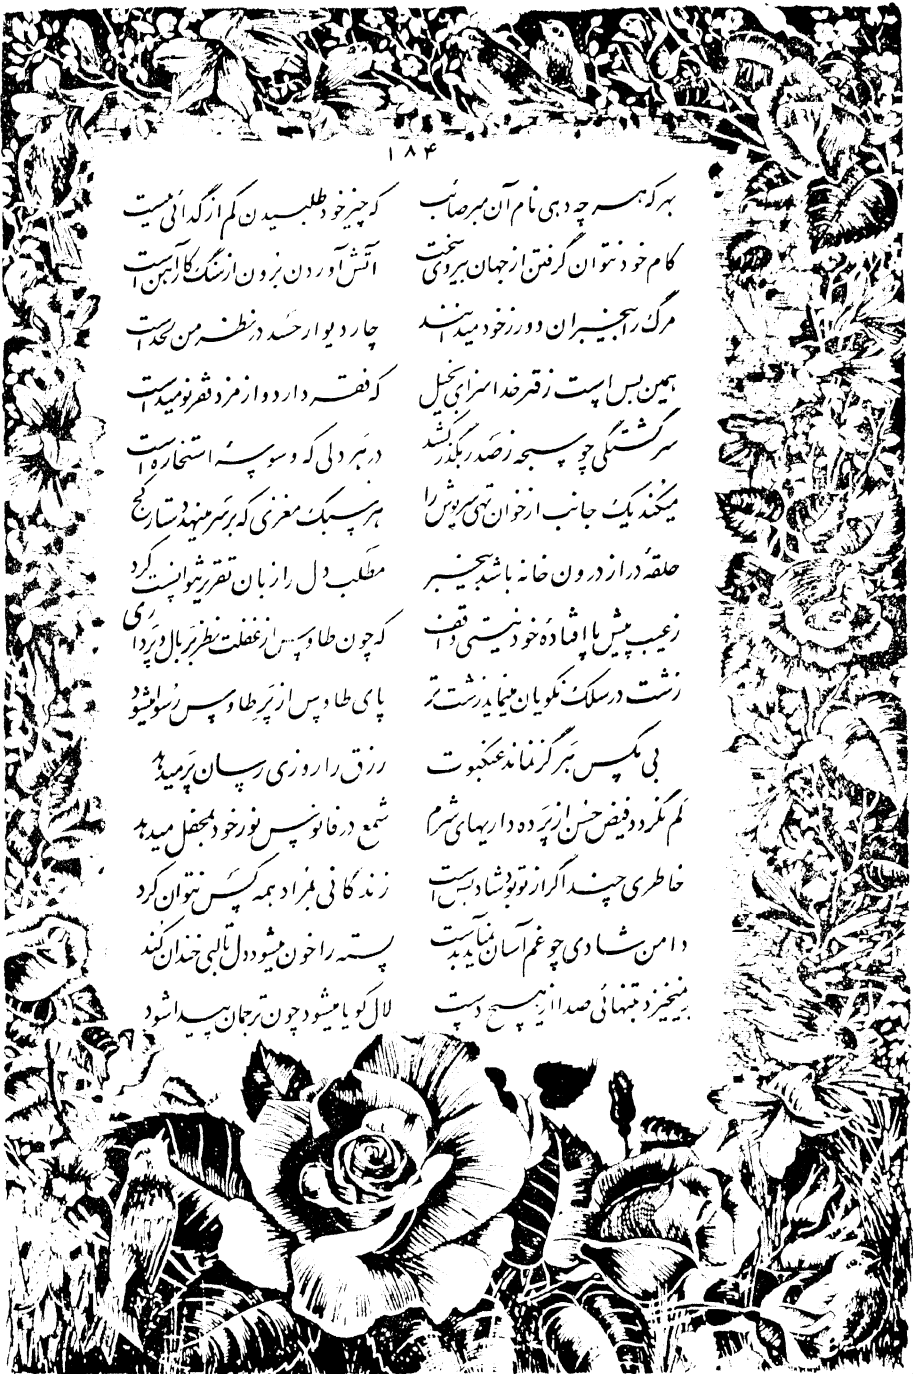 ۱۸۴
بهر که هر چه دهی نام آن مبر صائب	که چیز خود طلبیدن کم از گدائی نیست
کام خود نتوان گرفتن از جهان بیروی سخت	آتش آوردن برون از سنگ کار آهن است
مرگ را بیخبران دور ز خود میدانند	چار دیوار حسد در نظر من لحد است
همین بس است ز فقر خدا سزای بخیل	که فقر دارد و از مزد فقر نومید است
سرگشتگی چو سبحه ز صد رهگذر کشد	در هر دلی که وسوسهٔ استخاره است
میکند یک جانب از خوان تهی سرپوش را	هر سبک مغزی که بر سر مینهد دستار کج
حلقهٔ در از درون خانه باشد بیخبر	مطلب دل را زبان تقریر نتوانست کرد
ز عیب پیش پا افتادهٔ خود نیستی واقف	که چون طاوس از غفلت نظر بر بال و پر داری
زشت در سلک نکویان مینماید زشت تر	پای طاوس از پر طاوس رسوا میشود
بی مگس هرگز نماند عنکبوت	رزق را روزی رسان پر میدهد
کم نگردد فیض حسن از پرده داریهای شرم	شمع در فانوس نور خود بمحفل میدهد
خاطری چند اگر از تو بود شاد بس است	زندگانی بمراد همه کس نتوان کرد
دامن شادی چو غم آسان نمیآید بدست	پسته را خون میشود دل تا لبی خندان کند
بر نمیخیزد بتنهائی صدا از هیچ دست	لال گویا میشود چون ترجمان پیدا شود